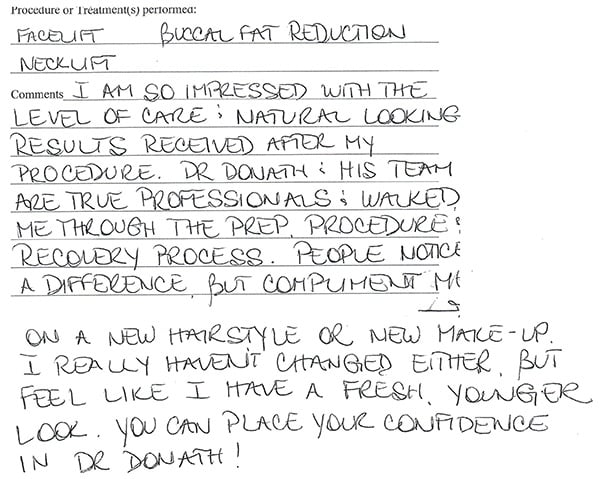 Procedure or Treatment(s) performed:
FACELIFT BUCCAL FAT REDUCTION
NECKLIFT
Comments I AM SO IMPRESSED WITH THE
LEVEL OF CARE & NATURAL LOOKING
RESULTS RECEIVED AFTER MY
PROCEDURE. DR DONATH & HIS TEAM
ARE TRUE PROFESSIONALS & WALKED
ME THROUGH THE PREP, PROCEDURE &
RECOVERY PROCESS. PEOPLE NOTICE
A DIFFERENCE, BUT COMPLIMENT
ON A NEW HAIRSTYLE OR NEW MAKE-UP.
I REALLY HAVEN'T CHANGED EITHER, BUT
FEEL LIKE I HAVE A FRESH, YOUNGER
LOOK. YOU CAN PLACE YOUR CONFIDENCE
IN DR DONATH!